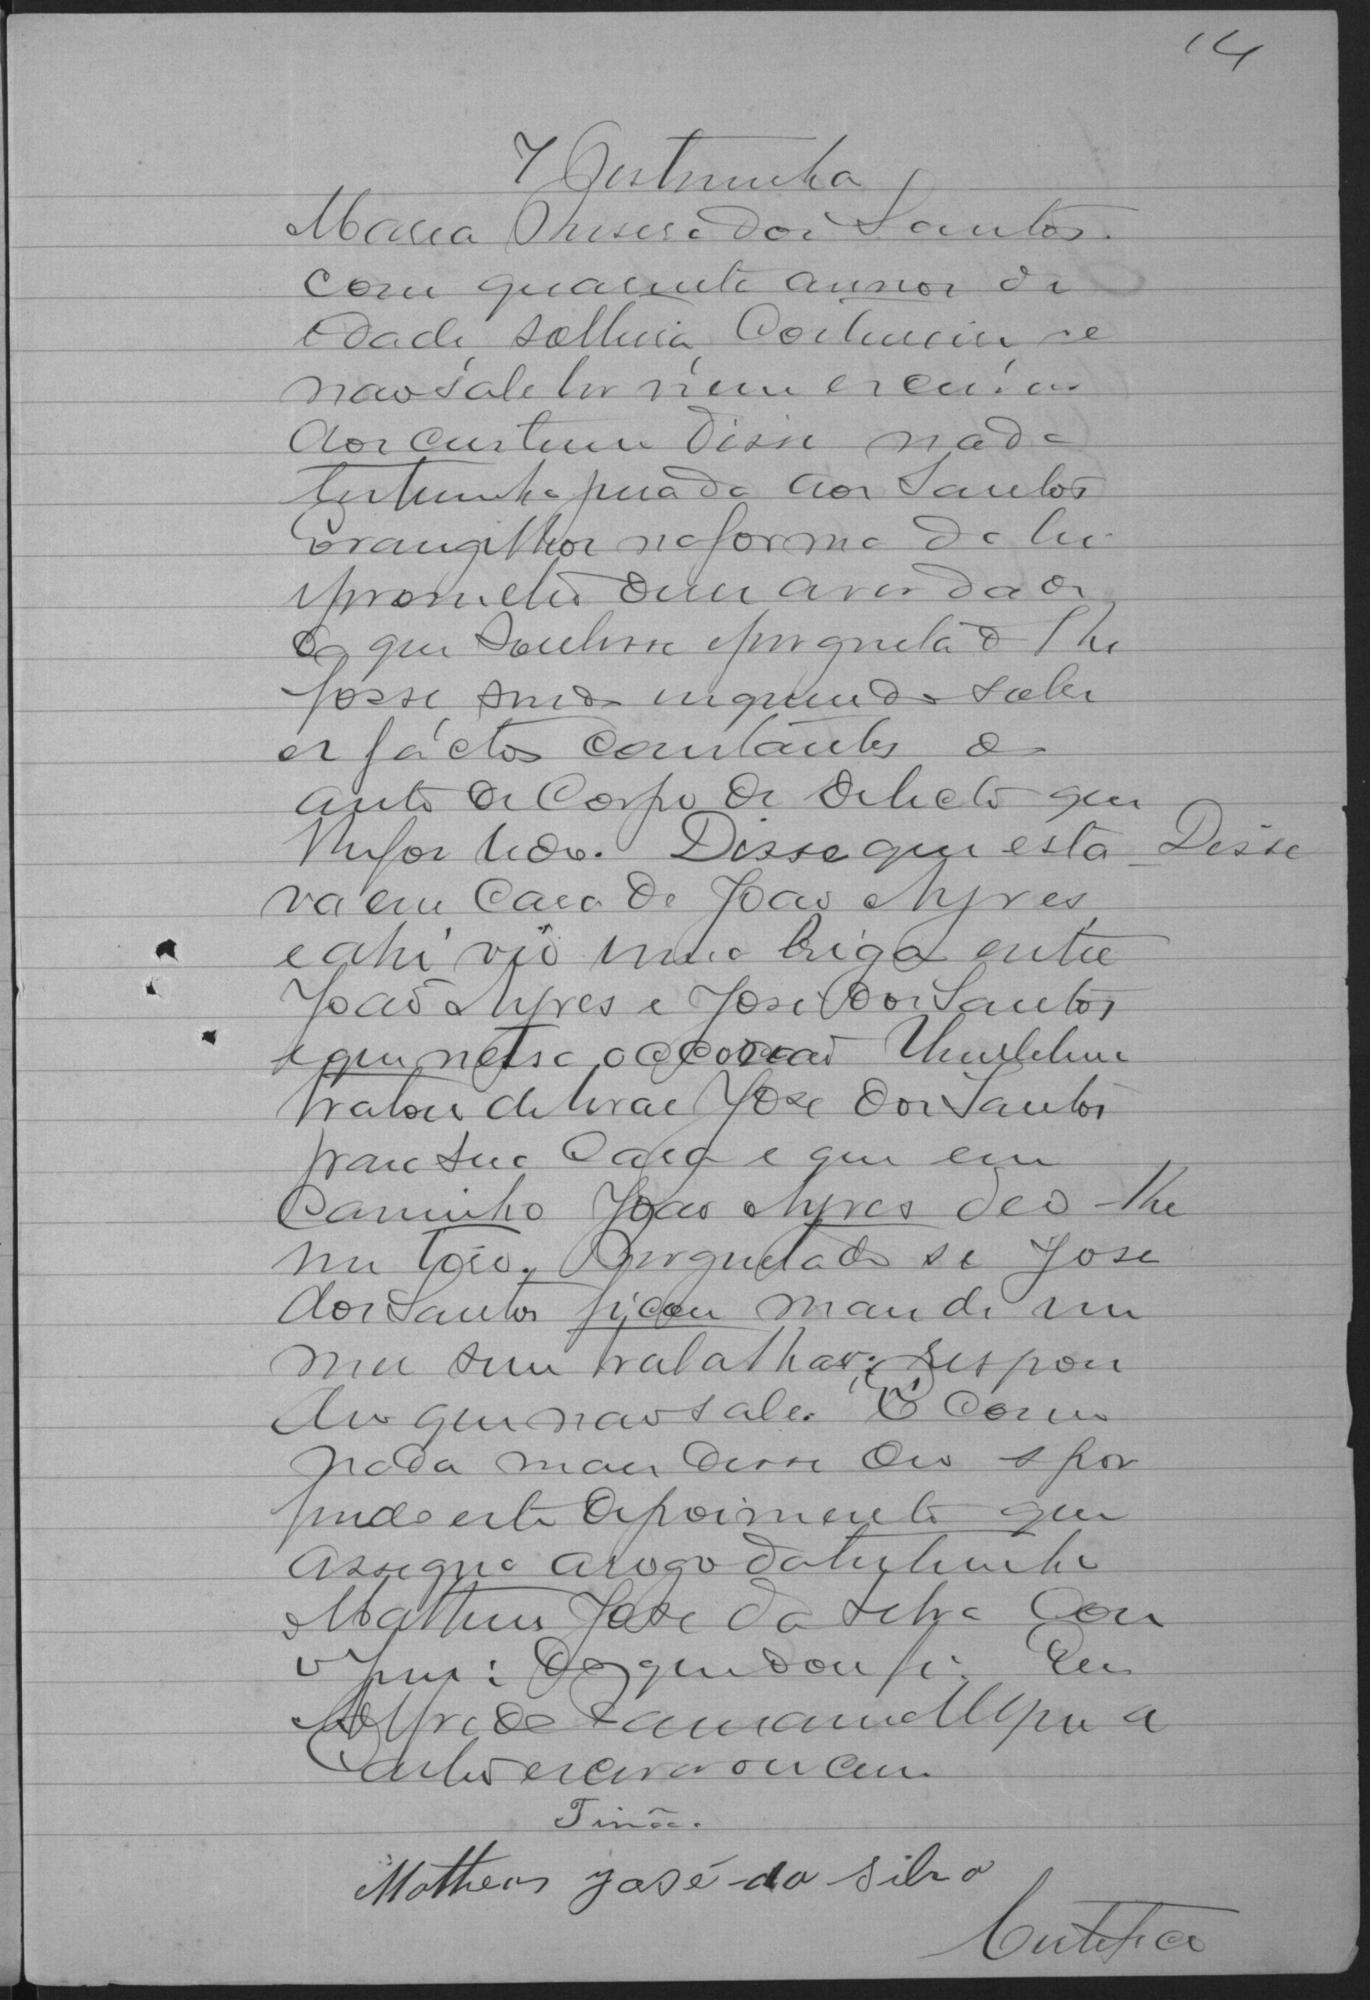 14
7 Testemunha
Maria dos Santos
com quarenta annos de
edade, solteira, Costureira e
não sabe ler nem escrever
aos custume disse nada
testemunha jurada aos Santos
Evangelhos na forma da lei
e prometeu diser a verdade
do que soubesse e perguntado lhe
fosse sendo inquerida sobre
os factos constantes do
auto de Corpo de delicto que
lhe foi lido. Disse que esta Disse
va em casa de João Ayres,
e ahi viu uma briga entre
João Ayres e José dos Santos
e que nessa occasião
tratou de levar José dos Santos
para sua casa e que em
Caminho João Ayres deo-lhe
um tiro. Perguntado se José
dos Santos ficou mais de um
mes sem trabalhar; Respon
deu que não sabe. E como
nada mais disse deu s por
findo este depoimento que
assigna a rogo da testemunha
Matheus José da Silva com
o Juis: do que dou fé. Eu
Alfredo
escrivão
Matheos José da Silva
Certifico